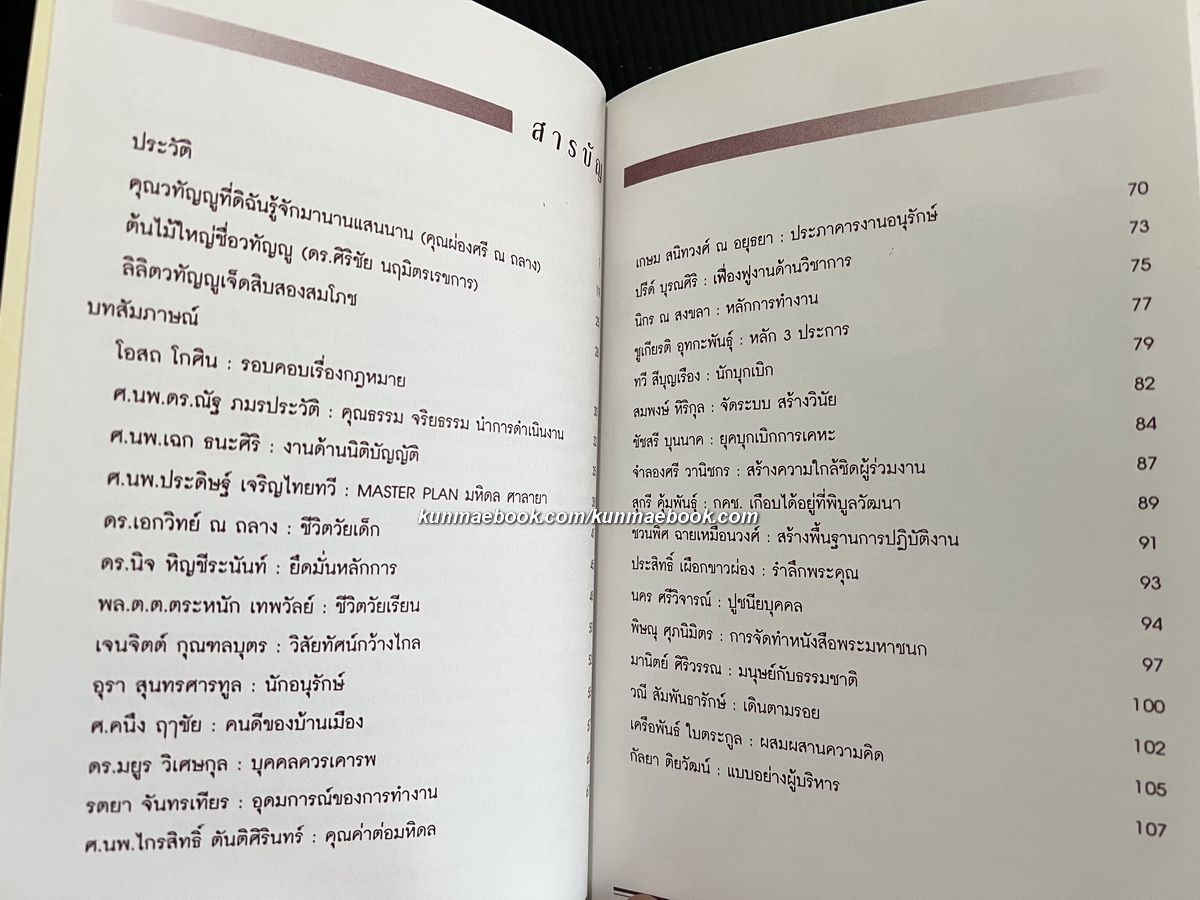 สารบัญ
ประวัติ
คุณวทัญญูที่ดิฉันรู้จักมานานแสนนาน (คุณผ่องศรี ณ ถลาง)
ต้นไม้ใหญ่ชื่อวทัญญู (ดร.ศิริชัย นฤมิตรเรขการ)
ลิลิตวทัญญูเจ็ดสิบสองสมโภช
บทสัมภาษณ์
โอสถ โกศิน : รอบคอบเรื่องกฎหมาย
ศ.นพ.ดร.ณัฐ ภมรประวัติ : คุณธรรม จริยธรรม นำการดำเนินงาน
ศ.นพ.เฉก ธนะศิริ : งานด้านนิติบัญญัติ
ศ.นพ.ประดิษฐ์ เจริญไทยทวี : MASTER PLAN มหิดล ศาลายา
ดร.เอกวิทย์ ณ ถลาง : ชีวิตวัยเด็ก
ดร.นิจ หิญชีระนันท์ : ยึดมั่นหลักการ
พล.ต.ต.ตระหนัก เทพวัลย์ : ชีวิตวัยเรียน
เจนจิตต์ กุณฑลบุตร : วิสัยทัศน์กว้างไกล
อุรา สุนทรศารทูล : นักอนุรักษ์
ศ.คนึง ฤๅชัย : คนดีของบ้านเมือง
ดร.มยูร วิเศษกุล : บุคคลควรเคารพ
รตยา จันทรเทียร : อุดมการณ์ของการทำงาน
ศ.นพ.ไกรสิทธิ์ ตันติศิรินทร์ : คุณค่าต่อมหิดล
เกษม สนิทวงศ์ ณ อยุธยา : ประภาคารงานอนุรักษ์ 70
ปรีดี บุรณศิริ : เฟื่องฟูงานด้านวิชาการ 73
นิกร ณ สงขลา : หลักการทำงาน 75
ชูเกียรติ อุทกะพันธุ์ : หลัก 3 ประการ 77
ทวี สีบุญเรือง : นักบุกเบิก 79
สมพงษ์ หิริกุล : จัดระบบ สร้างวินัย 82
ชัชสรี บุนนาค : ยุคบุกเบิกการเคหะ 84
จำลองศรี วานิชกร : สร้างความใกล้ชิดผู้ร่วมงาน 87
สุกรี คุ้มพันธุ์ : กคช. เกือบได้อยู่ที่พิบูลวัฒนา 89
ชวนพิศ ฉายเหมือนวงศ์ : สร้างพื้นฐานการปฏิบัติงาน 91
ประสิทธิ์ เผือกขาวผ่อง : รำลึกพระคุณ 93
นคร ศรีวิจารณ์ : ปูชนียบุคคล 94
พิษณุ ศุภนิมิตร : การจัดทำหนังสือพระมหาชนก 97
มานิตย์ ศิริวรรณ : มนุษย์กับธรรมชาติ 100
วณี สัมพันธารักษ์ : เดินตามรอย 102
เครือพันธ์ ใบตระกูล : ผสมผสานความคิด 105
กัลยา ติยวัฒน์ : แบบอย่างผู้บริหาร 107
kunmaebook.com/kunmaebook.com